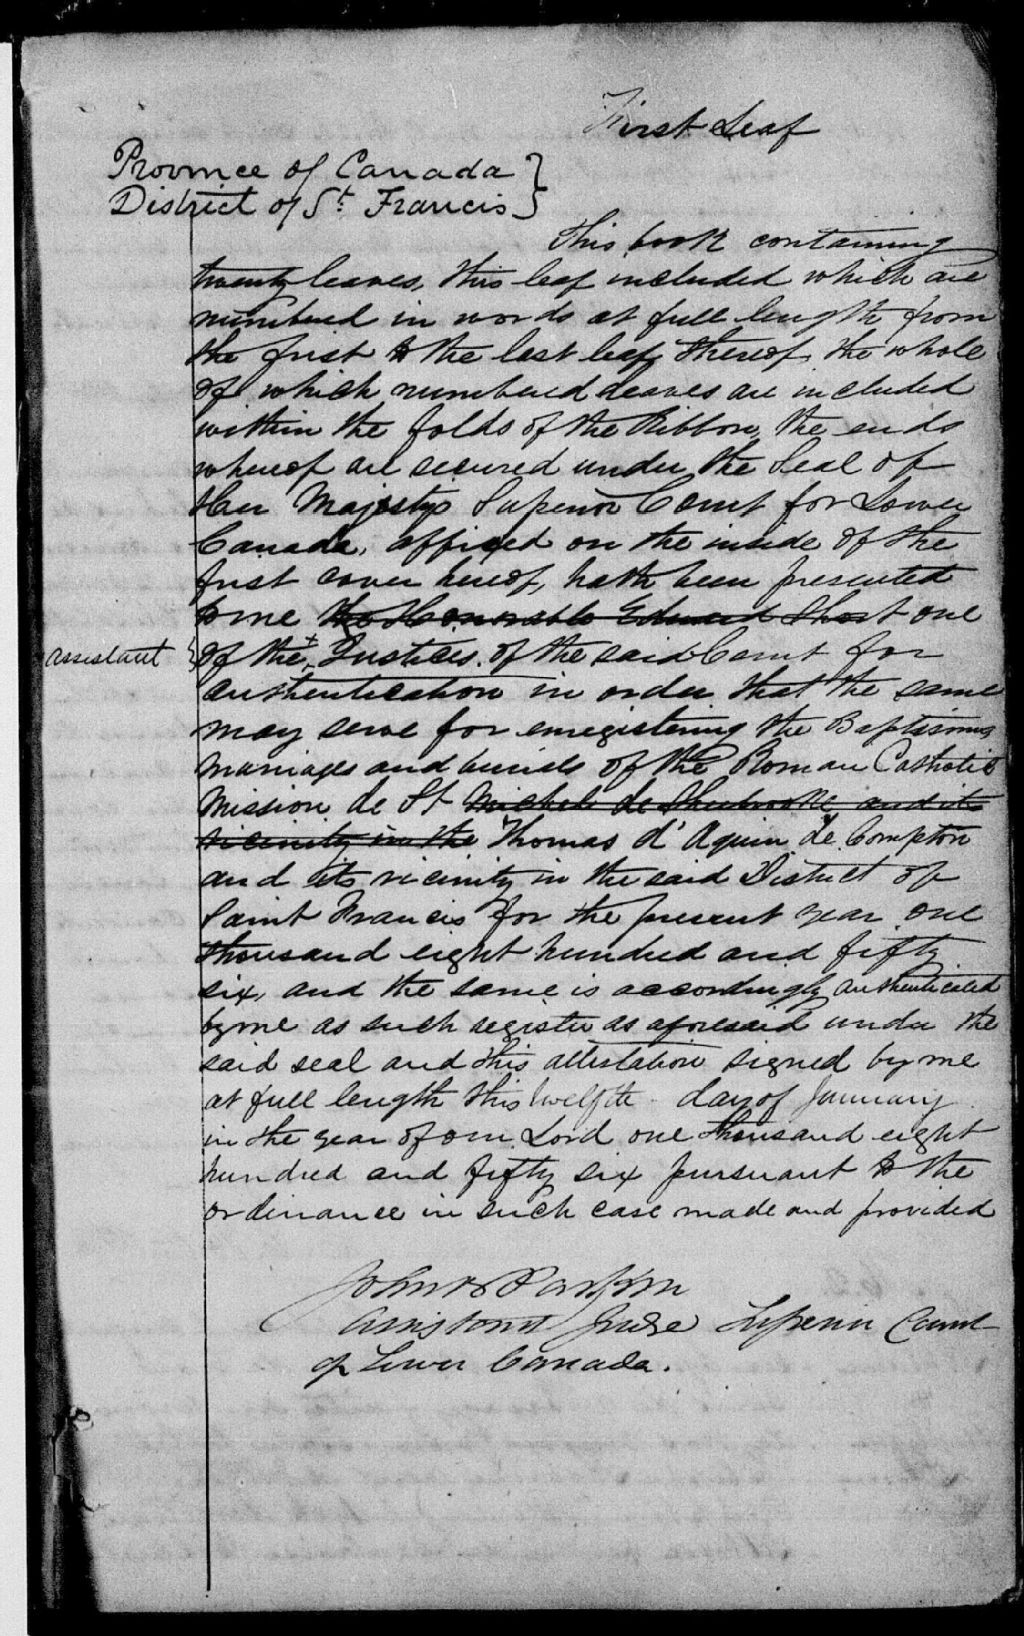 First Leaf
Province of Canada }
District of St. Francis }
This book containing
twenty leaves, this leaf included which are
numbered in words at full length from
the first to the last leaf thereof, the whole
of which numbered leaves are included
within the folds of the Ribbon, the ends
whereof are secured under the Seal of
Her Majestys Superior Court for Lower
Canada, affixed on the inside of the
first cover hereof, hath been presented
to me the Honorable Edward Short one
assistant } of the + Justices of the said Court for
authentication in order that the same
may serve for enregistering the Baptisms
marriages and burials of the Roman Catholic
Mission de St Michel de Sherbrooke and its
vicinity in the Thomas d'Aquin de Compton
and its vicinity in the said District of
Saint Francis for the present year one
thousand eight hundred and fifty
six, and the same is accordingly authenticated
by me as such register as aforesaid under the
said seal and this attestation signed by me
at full length this twelfth day of January
in the year of our Lord one thousand eight
hundred and fifty six pursuant to the
ordinance in such case made and provided
John
Assistant Judge Superior Court
of Lower Canada.